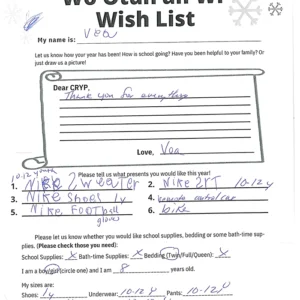 Wish List
My name is: Voa
Let us know how your year has been! How is school going? Have you been helpful to your family? Or
just draw us a picture!
Dear CRYP,
Thank you for everything
Love, Voa
10-12 youth
Please tell us what presents you would like this year!
1. Nike Sweater
2. Nike 10-12 y
3. Nike Shoes 1y
4. remote control car
5. Nike, FootBall
gloves
6. bike
Please let us know whether you would like school supplies, bedding or some bath-time sup-
plies. (Please check those you need):
School Supplies: X Bath-time Supplies: X Bedding (Twin/Full/Queen): X
I am a boy/girl (circle one) and I am 8 years old.
My sizes are:
Shoes: 1y Underwear: 10-12 y Pants: 10-12 y